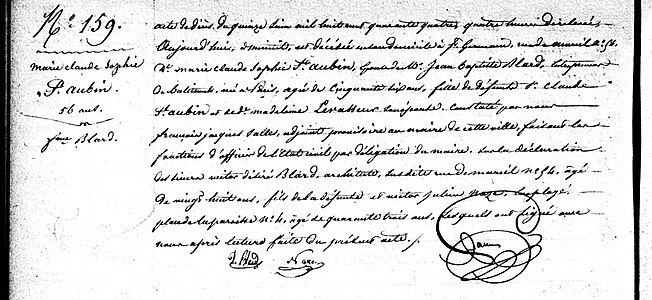 N.° 159.
marie claude Sophie
St. aubin
56 ans.
fme Blard.
acte de décès, du quinze Juin mil huit cent quarante quatre, quatre heures de relevée,
Aujourd'hui, à minuit, est décédée en son domicile à St. Germain, rue de mareil N.° 54.
De. marie claude Sophie St. aubin, épouse de M. Jean Baptiste Blard,
née à Paris, âgée de Cinquante six ans, fille de défunts Sr. Claude
St. aubin et de De. madeleine Levasseur. Constaté par nous
françois jacques Salles, adjoint provisoire au maire de cette ville, faisant les
fonctions d'officier de l'état civil par délégation du maire, sur la déclaration
des sieurs victor désiré Blard, architecte, susdite rue de mareil n.° 54, âgé
de vingt huit ans, fils de la défunte et victor Julien Naze, employé,
place de la paroisse N.° 4, âgé de quarante trois ans, lesquels ont signé avec
nous après lecture faite du présent acte./.
Blard
Naze